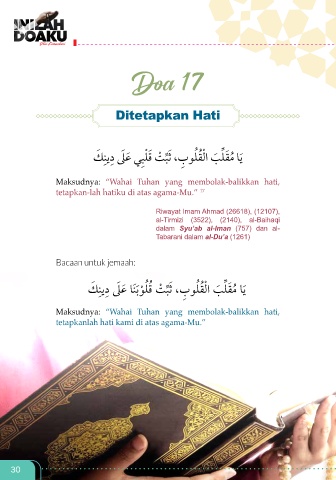 INILAH
DOAKU
Doa 17
Ditetapkan Hati
يَا مُقَلِّبَ الْقُلُوبِ، ثَبِّتْ قَلْبِي عَلَى دِينِكَ
Maksudnya: “Wahai Tuhan yang membolak-balikkan hati,
tetapkan-lah hatiku di atas agama-Mu.”
Riwayat Imam Ahmad (26618), (12107),
al-Tirmizi (3522), (2140), al-Baihaqi
dalam Syu’ab al-Iman (757) dan al-
Tabarani dalam al-Du’a (1261)
Bacaan untuk jemaah:
يَا مُقَلِّبَ الْقُلُوبِ، ثَبِّتْ قُلُوْبَنَا عَلَى دِينِكَ
Maksudnya: “Wahai Tuhan yang membolak-balikkan hati,
tetapkanlah hati kami di atas agama-Mu.”
30